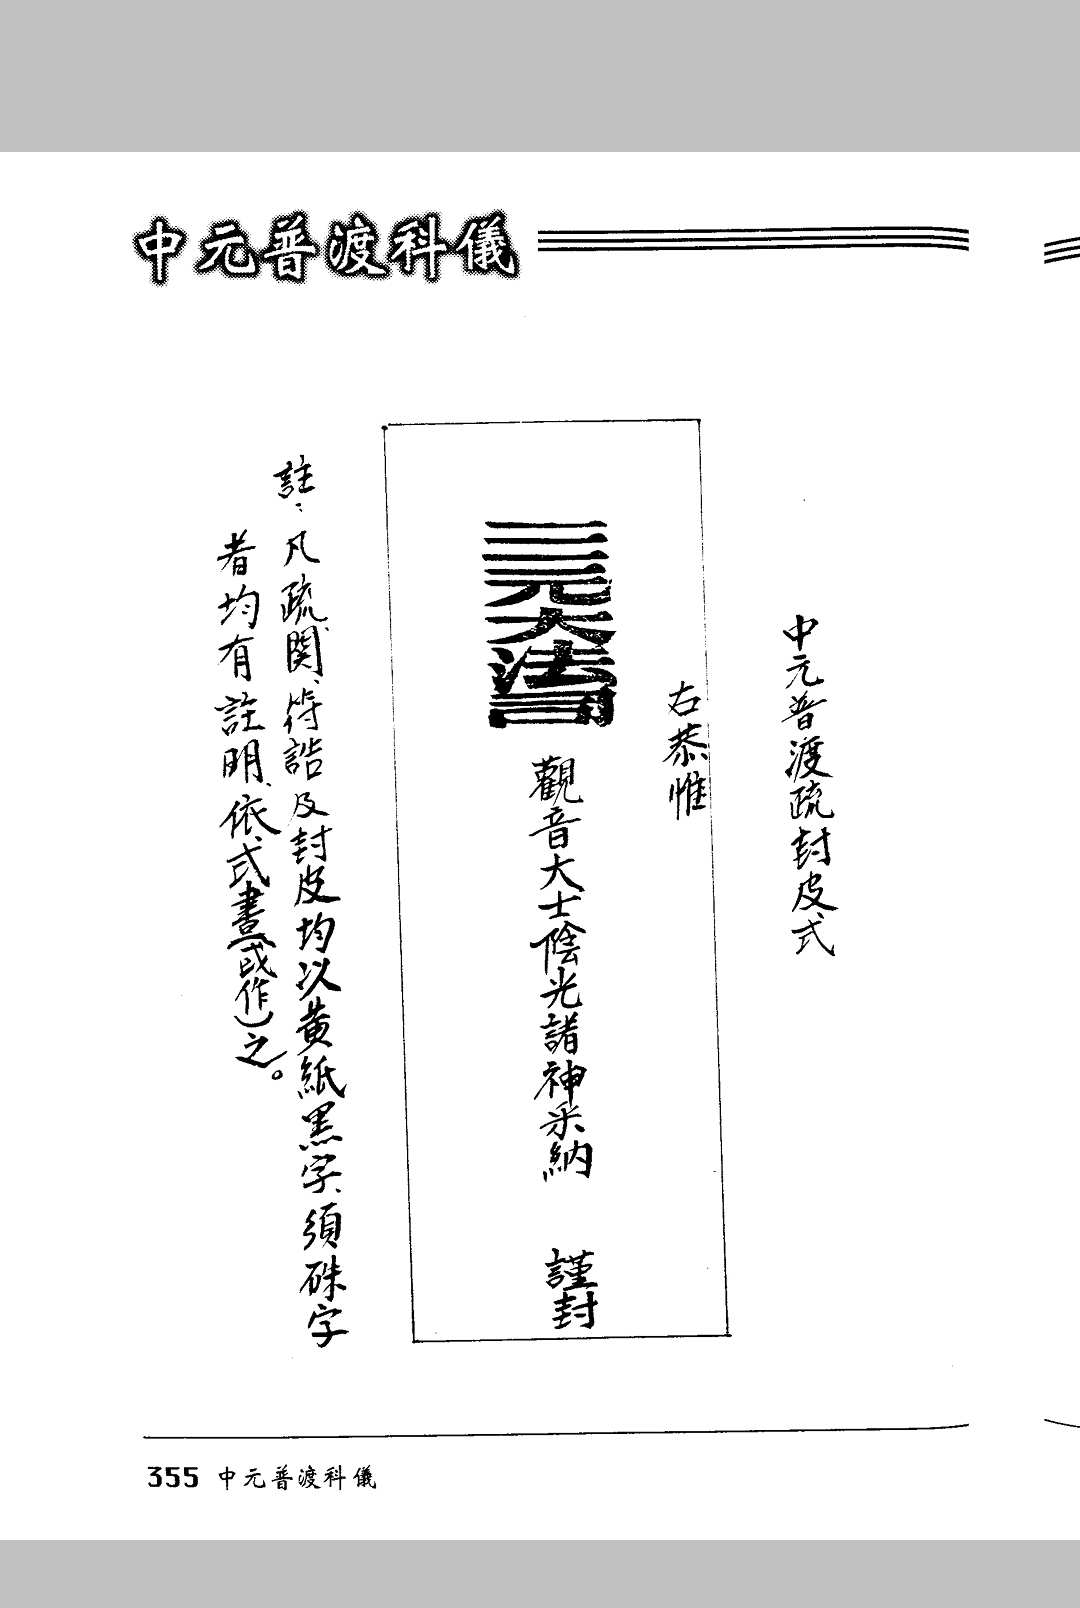 中元普渡科儀
中元普渡疏封皮式
右恭惟
三元大法司 觀音大士陰光諸神采納 謹封
註：凡疏、関、符誥及封皮均以黃紙黑字、須硃字
者均有註明、依式書（或作）之。
355 中元普渡科儀